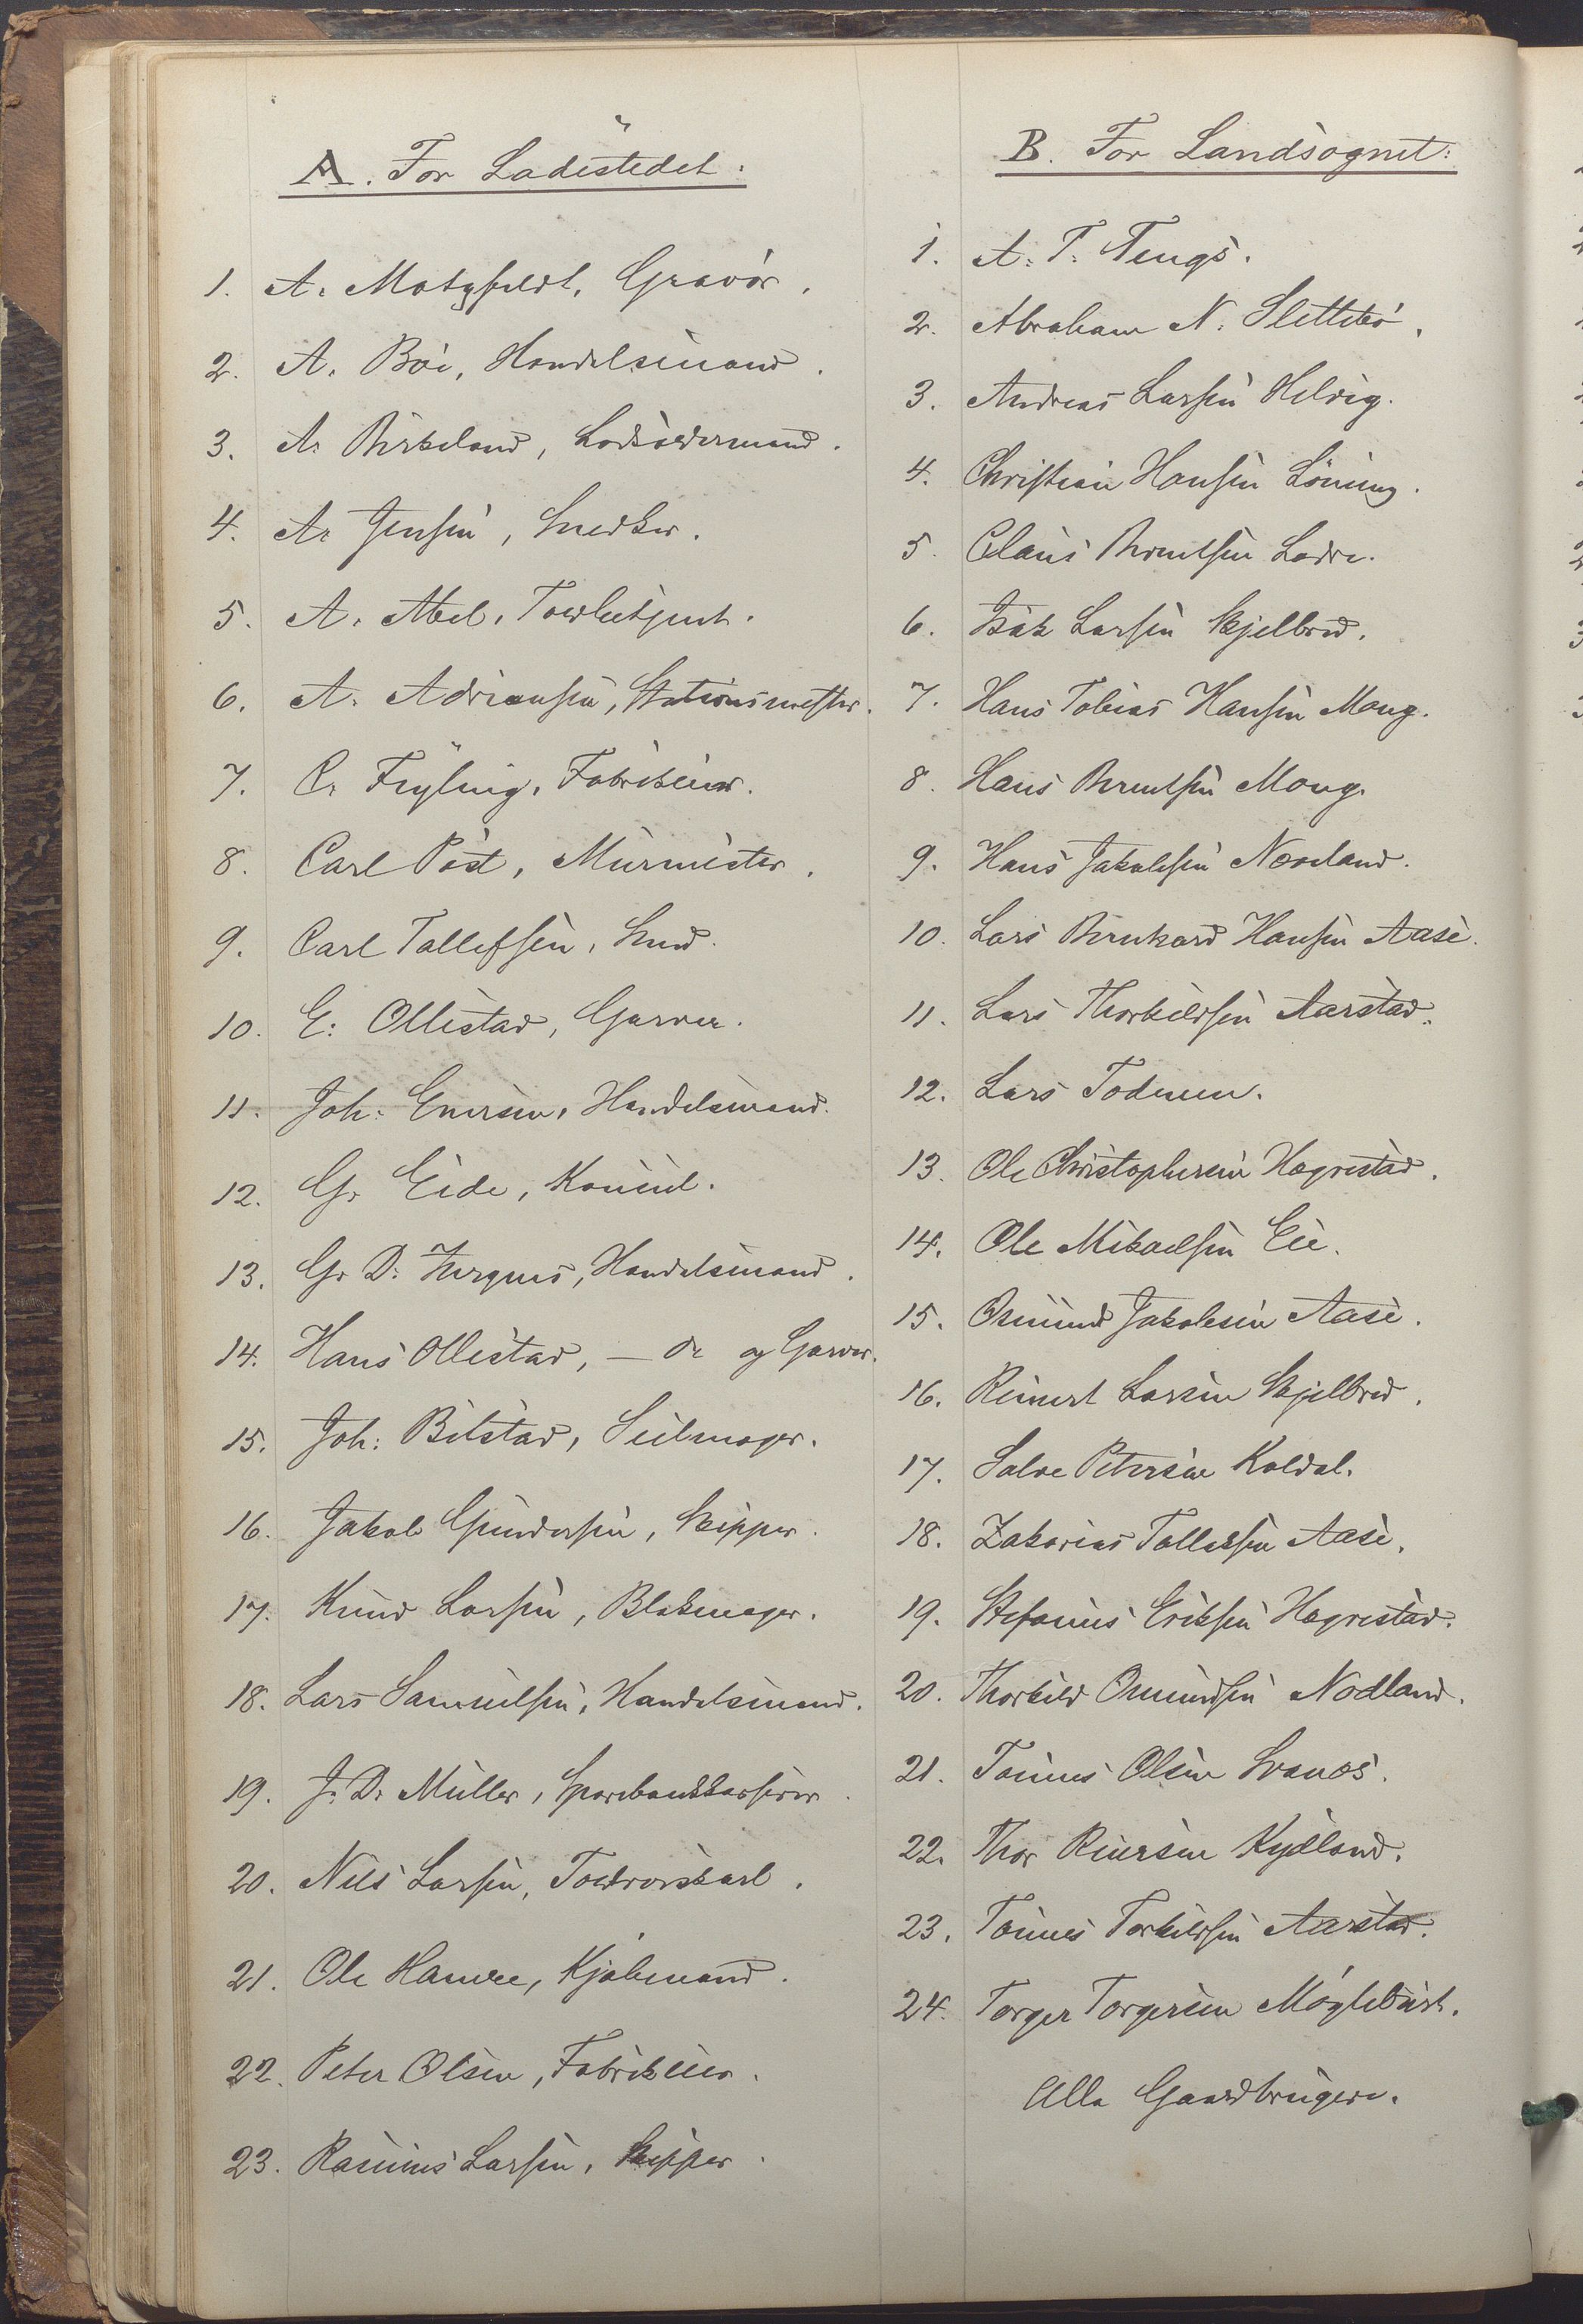 A. For Ladestedet:
1. A. Motzfeldt, Gravør.
2. A. Böe, Handelsmand.
3. A. Birkeland, Lodsoldermand.
4. A. Jensen, Snedker.
5. A. Abel, Toldbetjent.
6. A. Adriansen, Stationsmester.
7. C. Feyling, Fabrikeier.
8. Carl Pöst, Murmester.
9. Carl Tallefsen, Smed.
10. E. Ollestad, Garver.
11. Joh. Enersen, Handelsmand.
12. G. Eide, Konsul.
13. G. D. Hognes, Handelsmand.
14. Hans Ollestad, — do og Garver.
15. Joh. Bilstad, Seilmager.
16. Jakob Gundersen, Skipper.
17. Knud Larsen, Blokmager.
18. Lars Samuelsen, Handelsmand.
19. J. D. Müller, Sparebankkasserer.
20. Nils Larsen, Toldrorskarl.
21. Ole Hamre, Kjøbmand.
22. Peter Olsen, Fabrikeier.
23. Rasmus Larsen, Skipper.
B. For Landsognet:
1. A. T. Tengs.
2. Abraham N. Slettebö.
3. Andreas Larsen Helvig.
4. Christian Hansen Löning.
5. Claus Berntsen Ladre.
6. Isak Larsen Skjelbred.
7. Hans Tobias Hansen Mong.
8. Hans Berntsen Mong.
9. Hans Jakobsen Nodland.
10. Lars Bernhard Hansen Aase.
11. Lars Thorkildsen Aarstad.
12. Lars Todnem.
13. Ole Christophersen Hegrestad.
14. Ole Mikaelsen Eie.
15. Osmund Jakobsen Aase.
16. Reinert Larsen Skjelbred.
17. Salve Petersen Koldal.
18. Zakarias Tollaksen Aase.
19. Stefanus Eriksen Hegrestad.
20. Thorkild Osmundsen Nodland.
21. Tönnes Olsen Svanes.
22. Thor Reiersen Kydland.
23. Tönnes Torkildsen Aarstad.
24. Torger Torgersen Möglebust.
Alle Gaardbrugere.